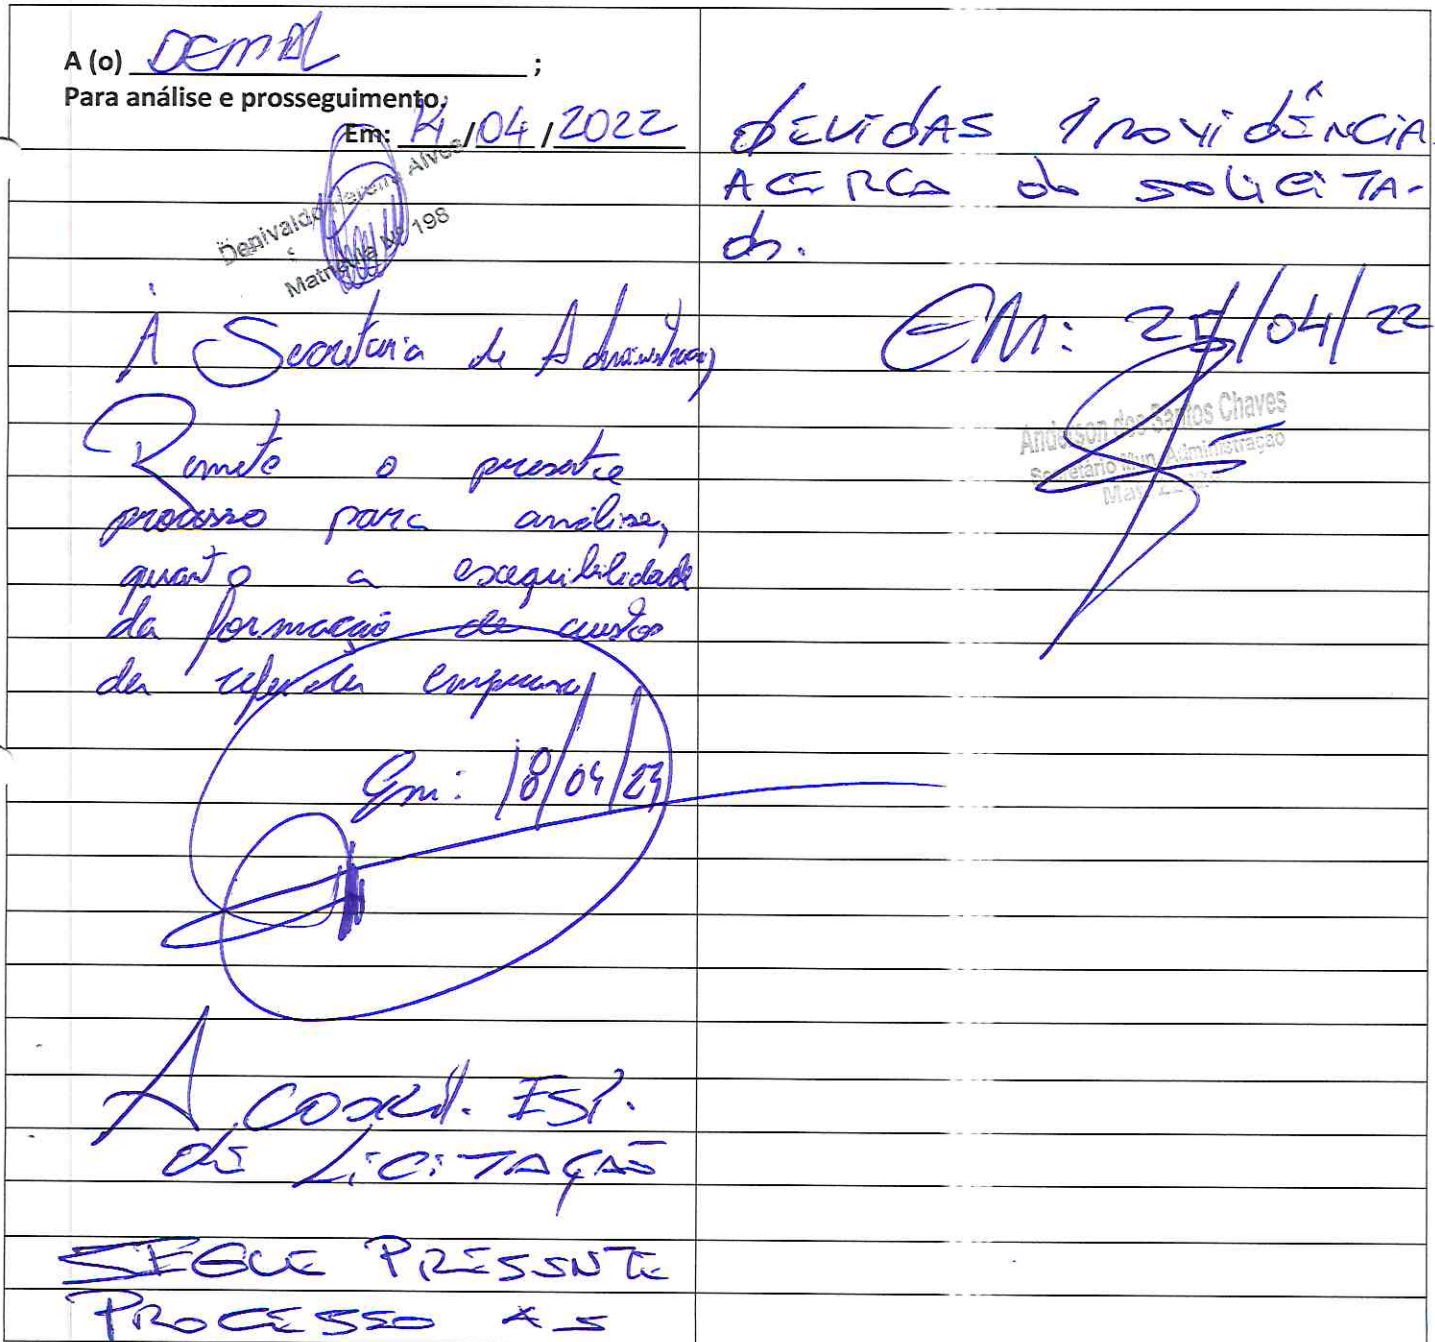 A (o) DEMAL ;
Para análise e prosseguimento.
Em: 14/04/2022
Denivaldo Pereira Alves
Matrícula Nº 198
À Secretaria de Administração,
Remeto o presente
processo para análise,
quanto a exequibilidade
da formação de custos
da referida empresa
Em: 18/04/22
A COORD. ESP.
DE LICITAÇÃO
SEGUE PRESENTE
PROCESSO AS
DEVIDAS PROVIDÊNCIA
ACERCA do SOLICITA-
do.
EM: 25/04/22
Anderson dos Santos Chaves
Secretário Mun. Administração